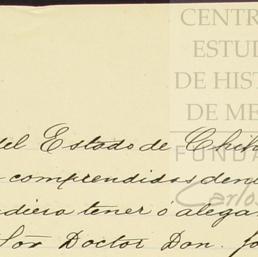 CENTR
ESTUD
DE HIST
DE ME
FUNDA
Carlos
del Estado de Chih
comprendidas den
diera tener ó alega
Sor Doctor Don. Jo